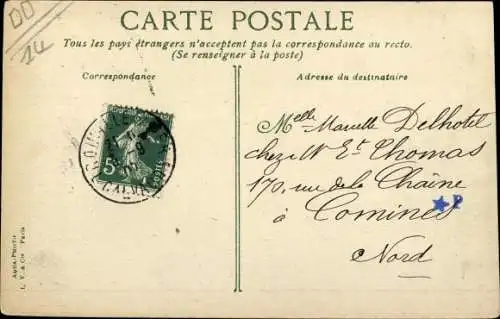 DD
14
CARTE POSTALE
Tous les pays étrangers n'acceptent pas la correspondance au recto.
(Se renseigner à la poste)
Correspondance
Adresse du destinataire
5
Melle Marcelle Delhotel
chez Mr Et Thomas
170, rue de la Chaîne
à Comines
P
Nord
Aqua-Photo
L. V. & Cie Paris